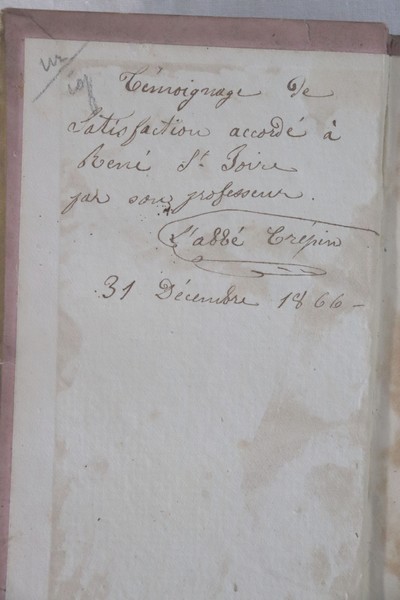 Témoignage de
Satisfaction accordé à
René St Foire
par son professeur.
L'abbé Crépin
31 Décembre 1866 -